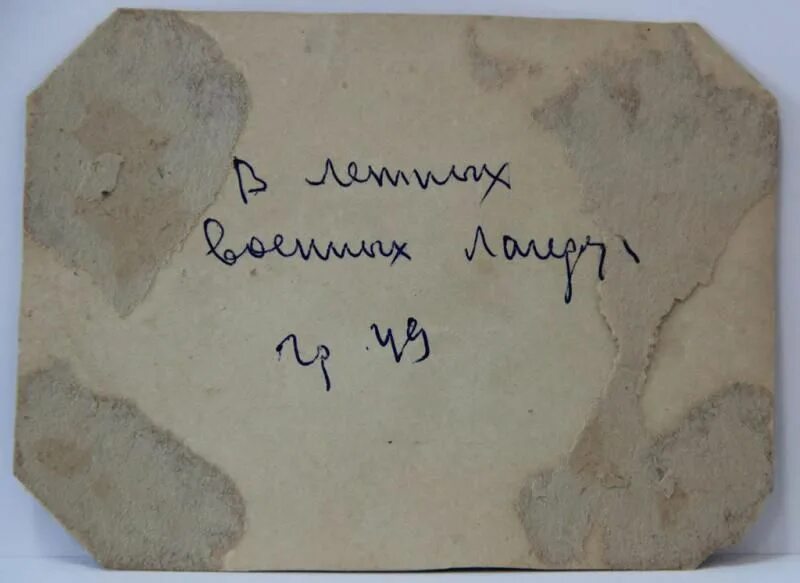 В летных
военных лагерях
гр 49